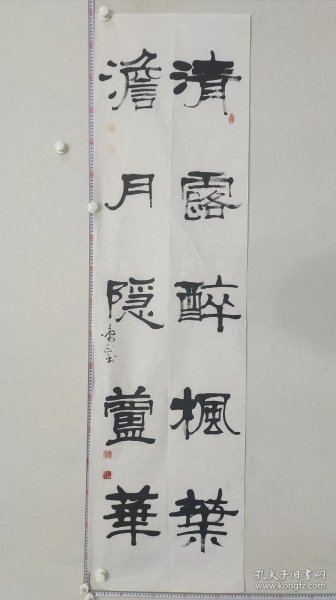 清露醉楓葉
澹月隱蘆華
孔夫子旧书网
www.kongfz.com